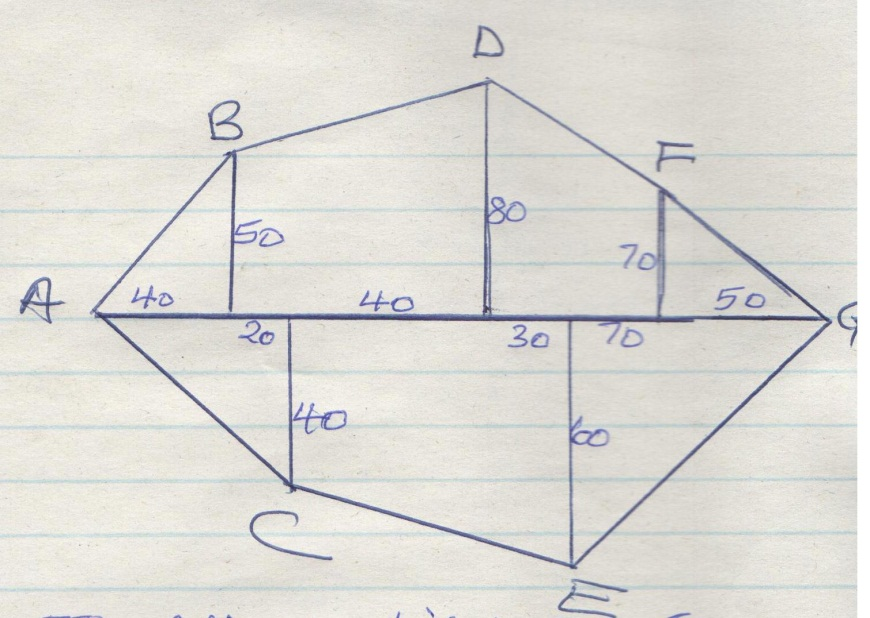 D
B
F
50
80
70
A
40
40
50
G
20
30
70
40
60
C
E